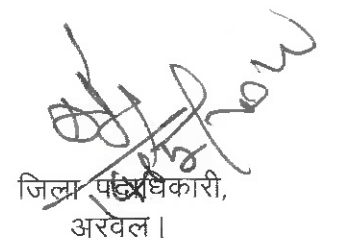 जिला पदाधिकारी,
अरवल।